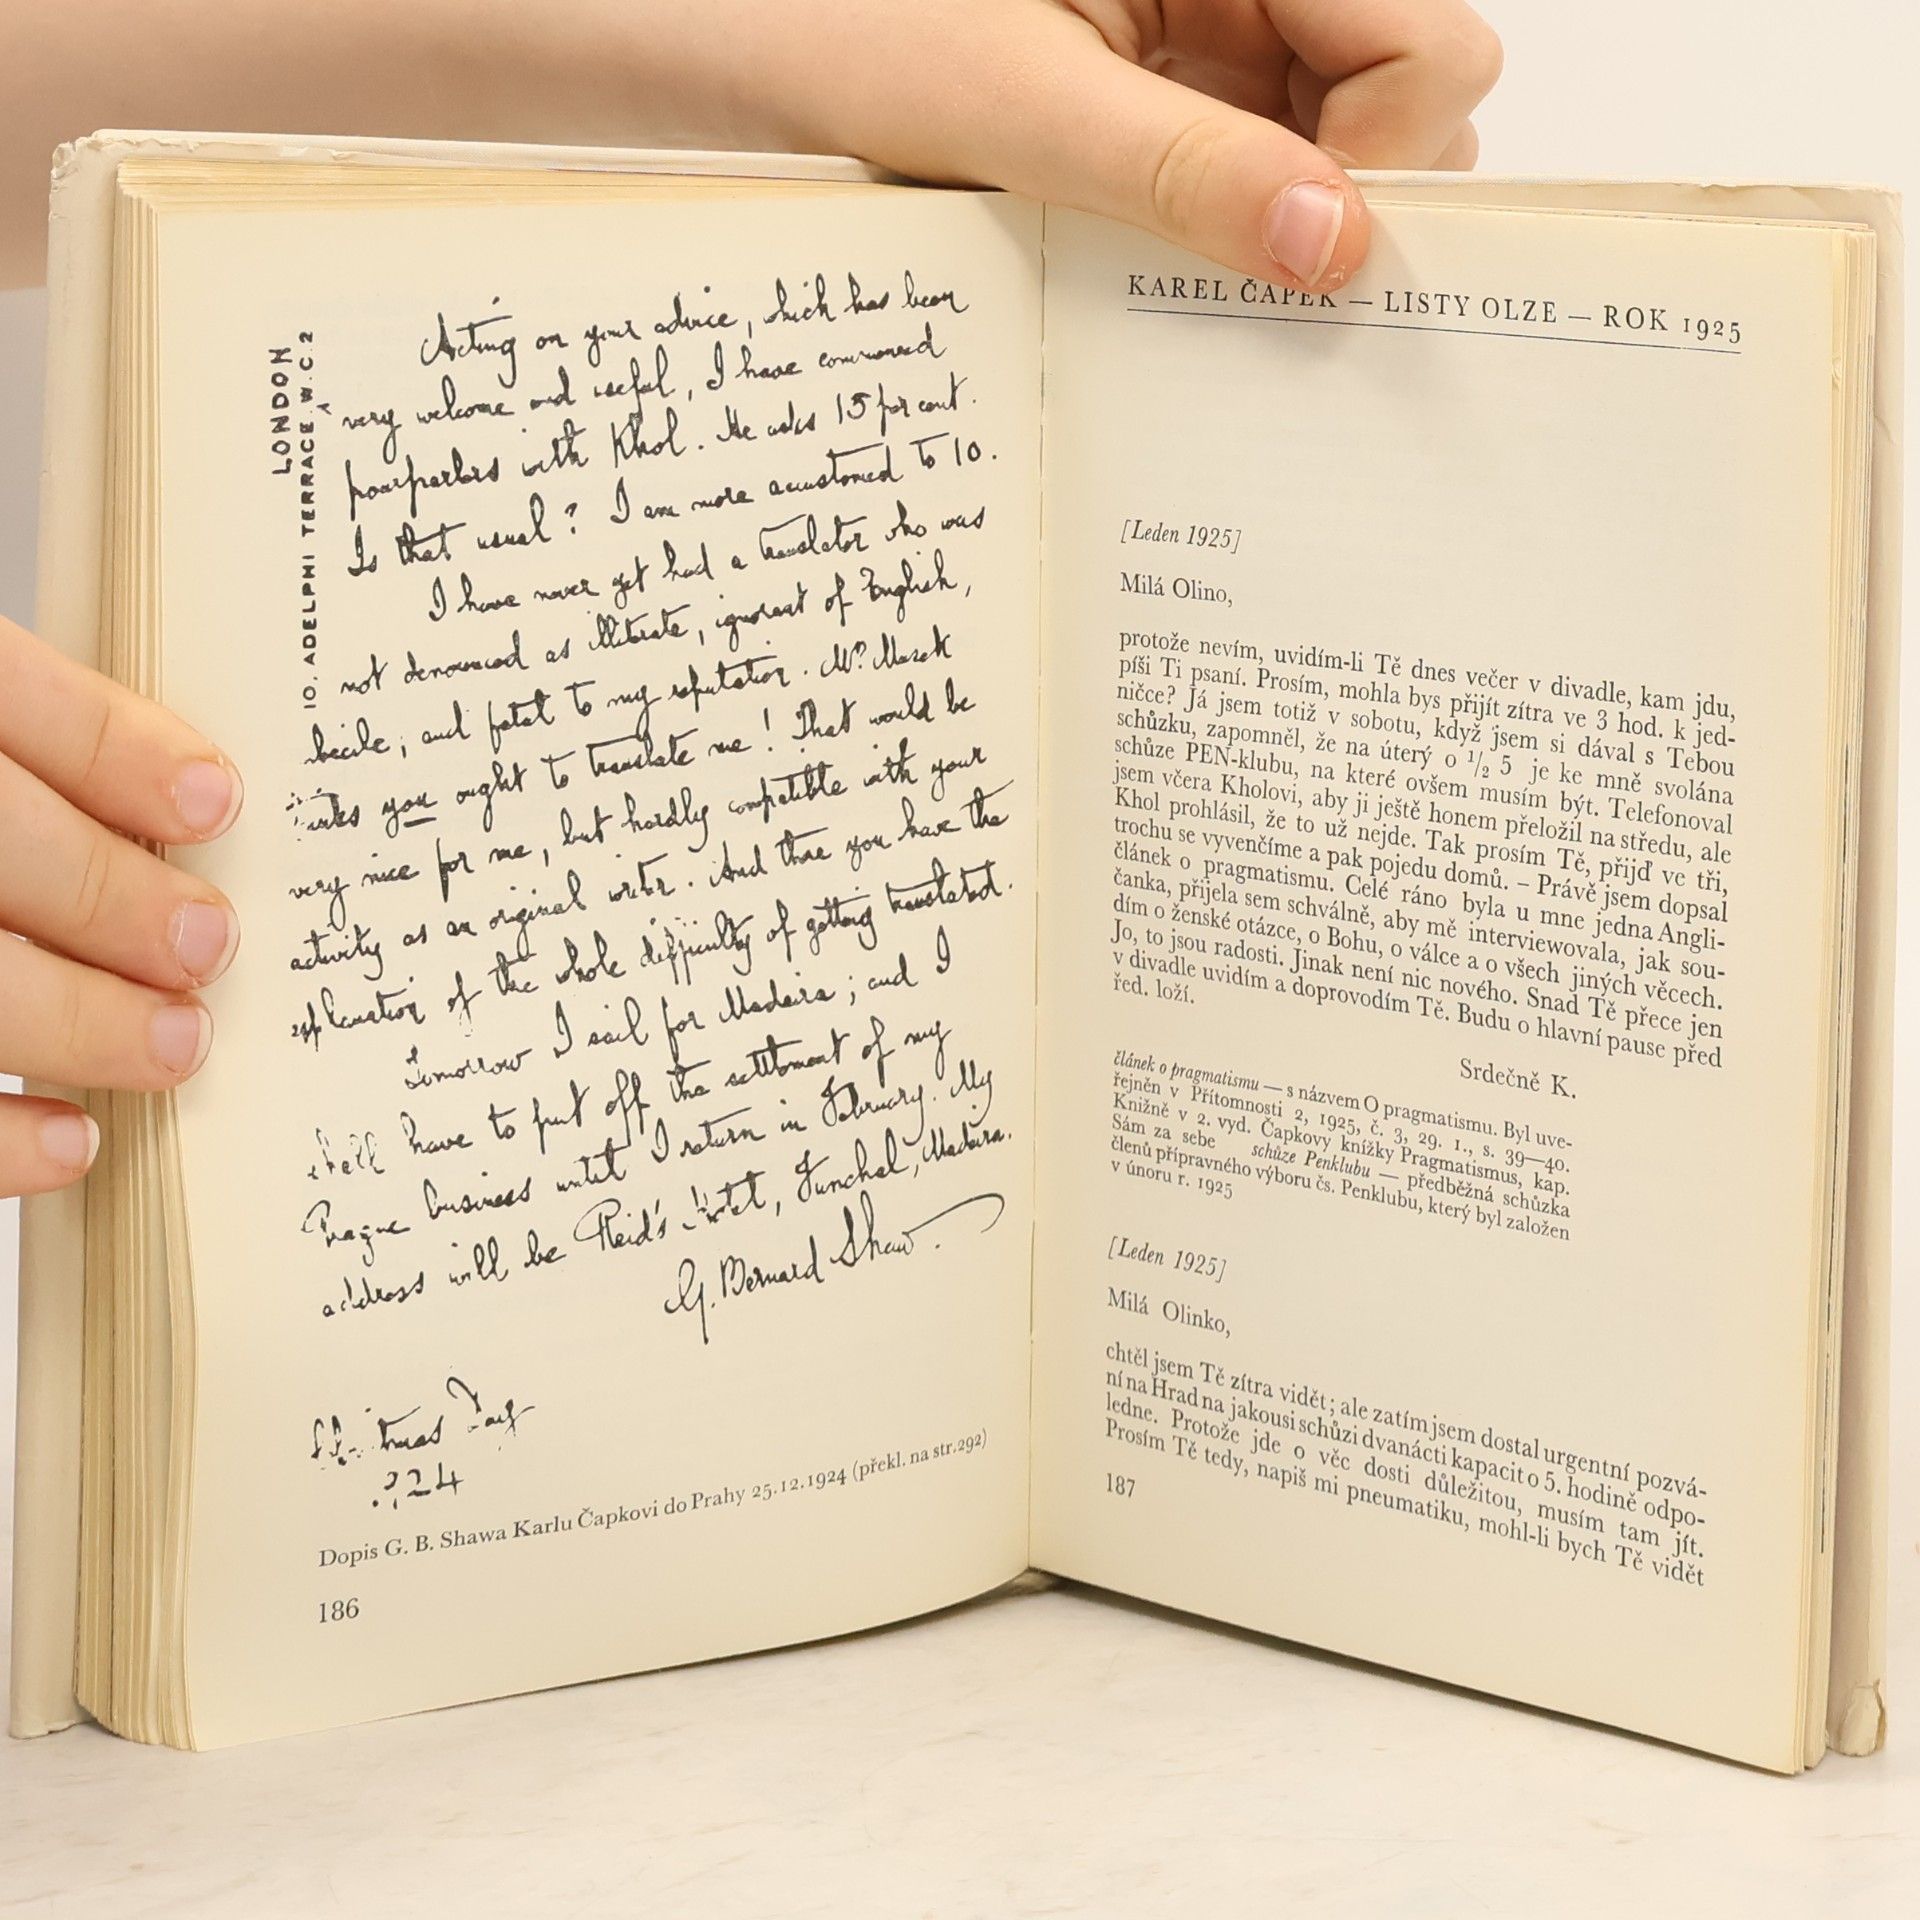 LONDON
10. ADELPHI TERRACE. W.C.2
Acting on your advice, which has been
very welcome and useful, I have commenced
pourparlers with Khol. He asks 15 per cent.
Is that usual? I am more accustomed to 10.
I have never yet had a translator who was
not denounced as illiterate, ignorant of English,
becile, and fatal to my reputation. Mr. Musek
you ought to translate me! That would be
very nice for me, but hardly compatible with your
activity as an original writer. And there you have the
explanation of the whole difficulty of getting translated.
Tomorrow I sail for Madeira; and I
shall have to put off the settlement of my
Prague business until I return in February. My
address will be Reid's Hotel, Funchal, Madeira.
G. Bernard Shaw.
Dopis G. B. Shawa Karlu Čapkovi do Prahy 25.12.1924 (překl. na str.292)
186
KAREL ČAPEK — LISTY OLZE — ROK 1925
[Leden 1925]
Milá Olino,
protože nevím, uvidím-li Tě dnes večer v divadle, kam jdu,
píši Ti psaní. Prosím, mohla bys přijít zítra ve 3 hod. k jed-
ničce? Já jsem totiž v sobotu, když jsem si dával s Tebou
schůzku, zapomněl, že na úterý o 1/2 5 je ke mně svolána
schůze PEN-klubu, na které ovšem musím být. Telefonoval
jsem včera Kholovi, aby ji ještě honem přeložil na středu, ale
Khol prohlásil, že to už nejde. Tak prosím Tě, přijď ve tři,
trochu se vyvenčíme a pak pojedu domů. – Právě jsem dopsal
článek o pragmatismu. Celé ráno byla u mne jedna Angli-
čanka, přijela sem schválně, aby mě interviewovala, jak sou-
dím o ženské otázce, o Bohu, o válce a o všech jiných věcech.
Jo, to jsou radosti. Jinak není nic nového. Snad Tě přece jen
v divadle uvidím a doprovodím Tě. Budu o hlavní pause před
řed. loží.
Srdečně K.
článek o pragmatismu — s názvem O pragmatismu. Byl uve-
řejněn v Přítomnosti 2, 1925, č. 3, 29. 1., s. 39—40.
Knižně v 2. vyd. Čapkovy knížky Pragmatismus, kap.
Sám za sebe schůze Penklubu — předběžná schůzka
členů přípravného výboru čs. Penklubu, který byl založen
v únoru r. 1925
[Leden 1925]
Milá Olinko,
chtěl jsem Tě zítra vidět; ale zatím jsem dostal urgentní pozvá-
ní na Hrad na jakousi schůzi dvanácti kapacit o 5. hodině odpo-
ledne. Protože jde o věc dosti důležitou, musím tam jít.
Prosím Tě tedy, napiš mi pneumatiku, mohl-li bych Tě vidět
187